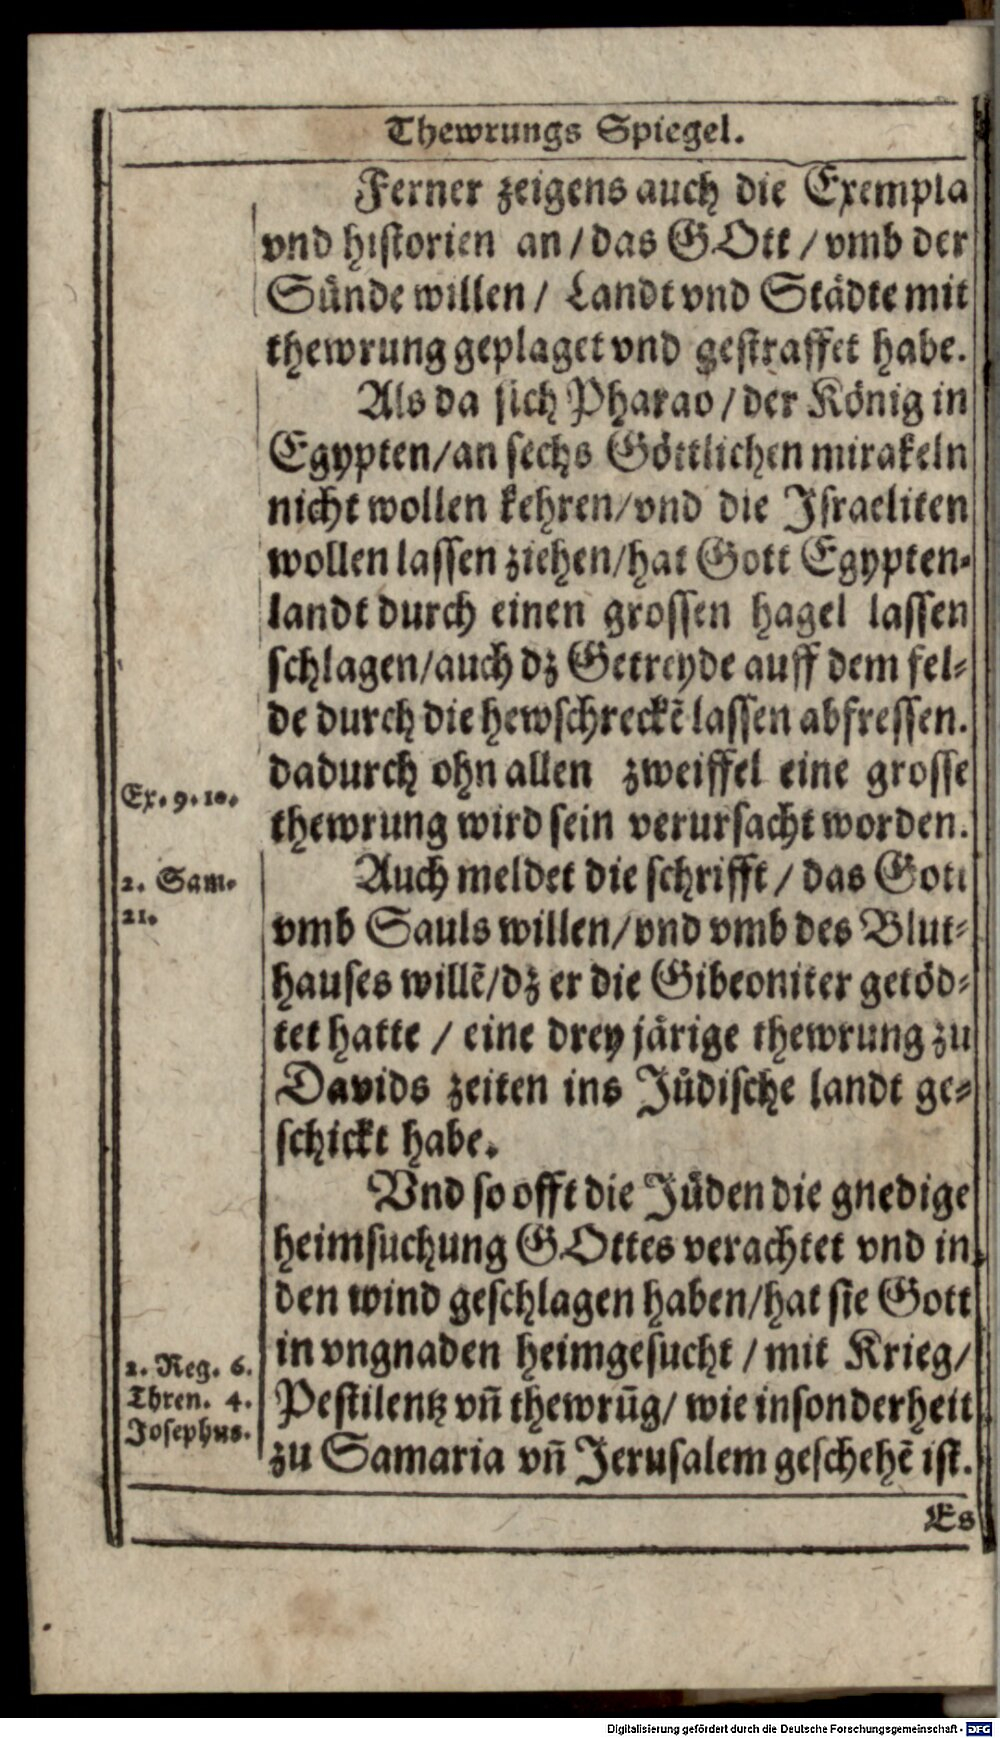 Thewrungs Spiegel.
Ferner zeigens auch die Exempla
vnd historien an / das GOtt / vmb der
Sünde willen / Landt vnd Städte mit
thewrung geplaget vnd gestraffet habe.
Als da sich Pharao / der König in
Egypten/an sechs Göttlichen mirakeln
nicht wollen kehren/vnd die Israeliten
wollen lassen ziehen/hat Gott Egypten-
landt durch einen grossen hagel lassen
schlagen/auch dz Getreyde auff dem fel-
de durch die hewschreckẽ lassen abfressen.
dadurch ohn allen zweiffel eine grosse
Ex. 9. 10.
thewrung wird sein verursacht worden.
Auch meldet die schrifft / das Gott
2. Sam.
21.
vmb Sauls willen/vnd vmb des Blut-
hauses willẽ/dz er die Gibeoniter getöd-
tet hatte / eine drey järige thewrung zu
Davids zeiten ins Jüdische landt ge-
schickt habe.
Vnd so offt die Jüden die gnedige
heimsuchung GOttes verachtet vnd in
den wind geschlagen haben/hat sie Gott
in vngnaden heimgesucht / mit Krieg/
2. Reg. 6.
Thren. 4.
Josephus.
Pestilentz vñ thewrũg/ wie insonderheit
zu Samaria vñ Jerusalem geschehẽ ist.
Es
Digitalisierung gefördert durch die Deutsche Forschungsgemeinschaft - DFG